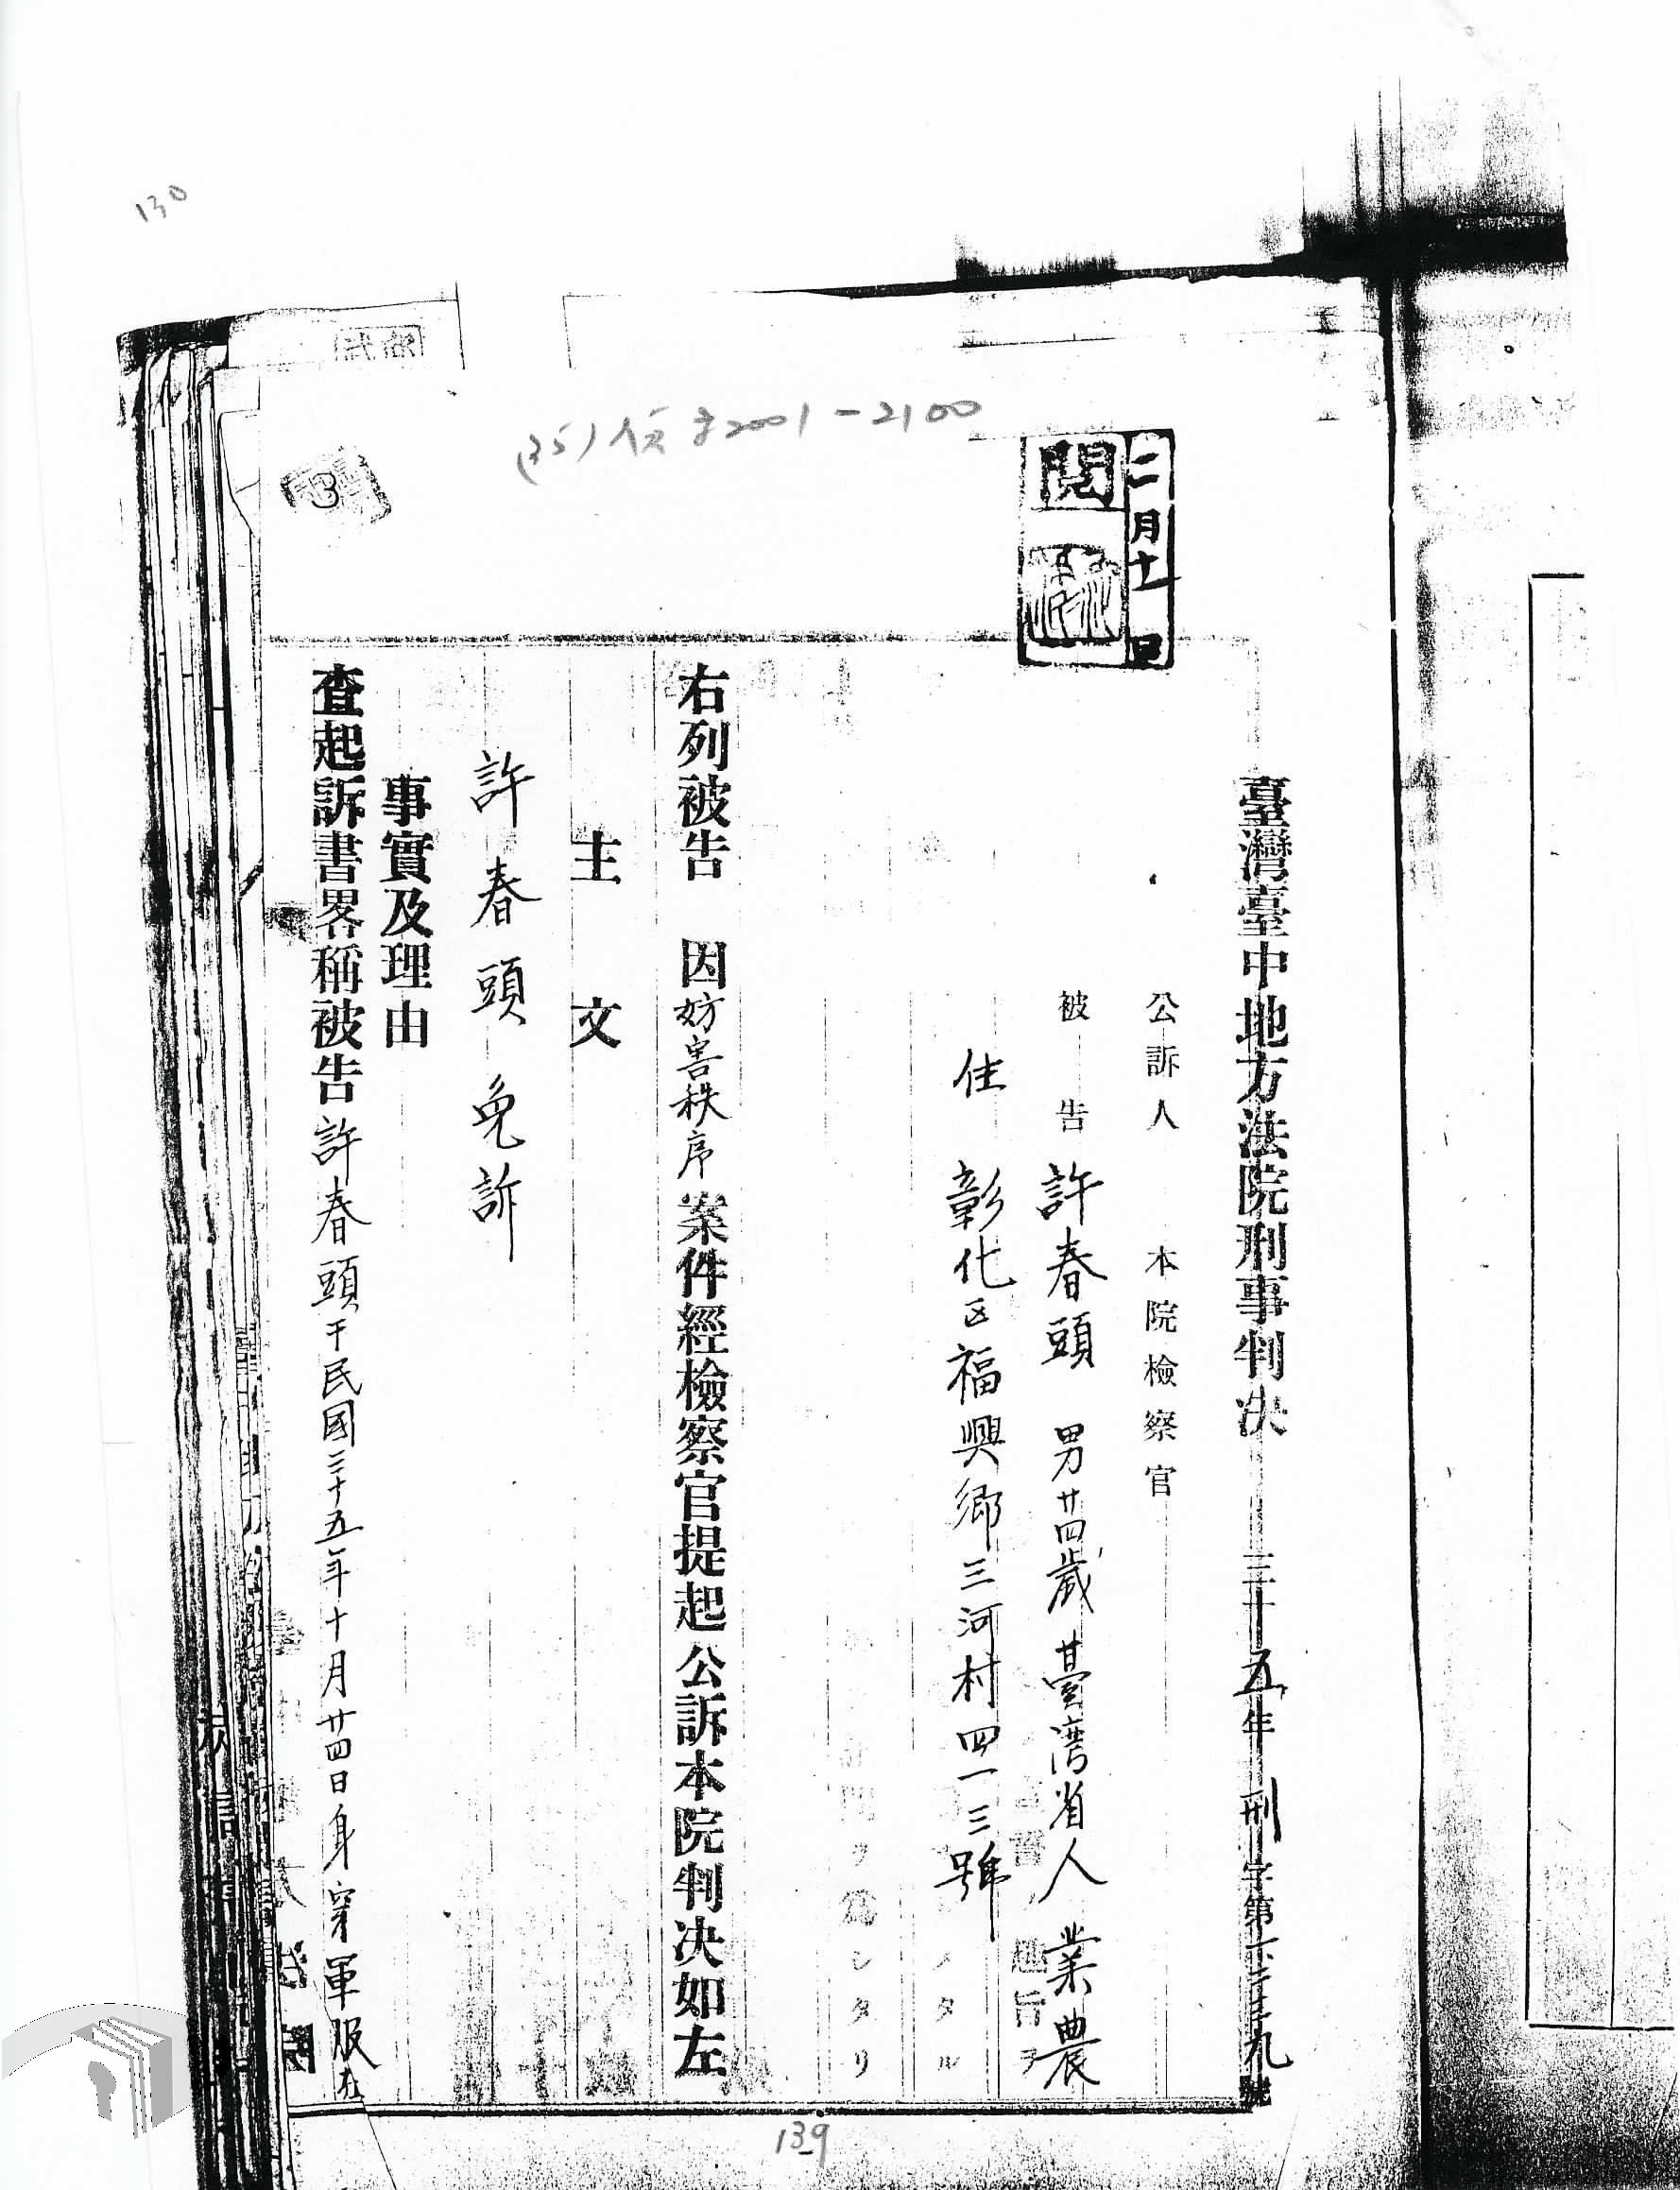 130
(35)
2001-2100
二月十一日
閱
臺灣臺中地方法院刑事判决 三十五年 刑 字第 九號
公訴人 本院檢察官
被告 許春頭 男 廿四歲 臺湾省人 業農
住 彰化区福興鄉三河村四一三號
右列被告 因妨害秩序案件經檢察官提起公訴本院判决如左
主文
許春頭免訴
事實及理由
查起訴書畧稱被告許春頭于民國三十五年十月廿四日身穿軍服在
139